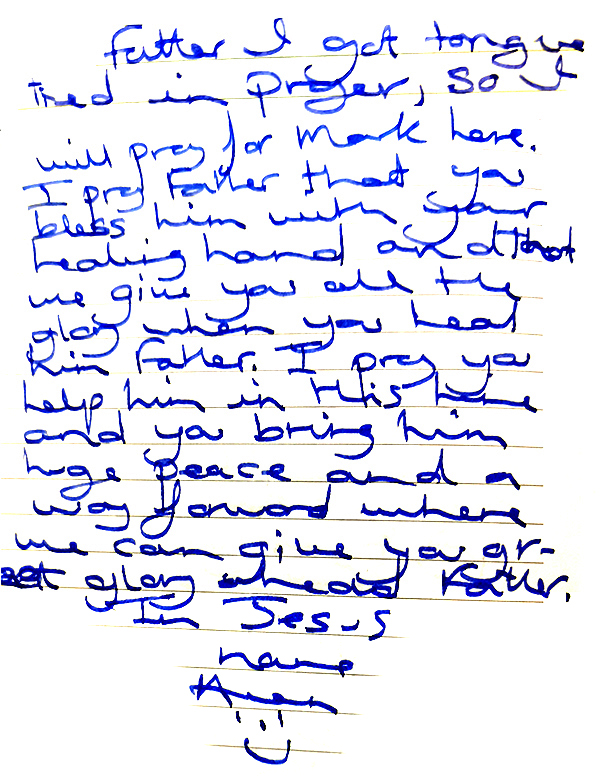 Father I got tongue
tied in prayer, so I
will pray for Mark here.
I pray Father that you
bless him with your
healing hand and that
we give you all the
glory when you heal
him Father. I pray you
help him in this time
and you bring him
huge peace and a
way forward where
we can give you gr-
eat glory ahead Father.
In Jesus
name
Amen